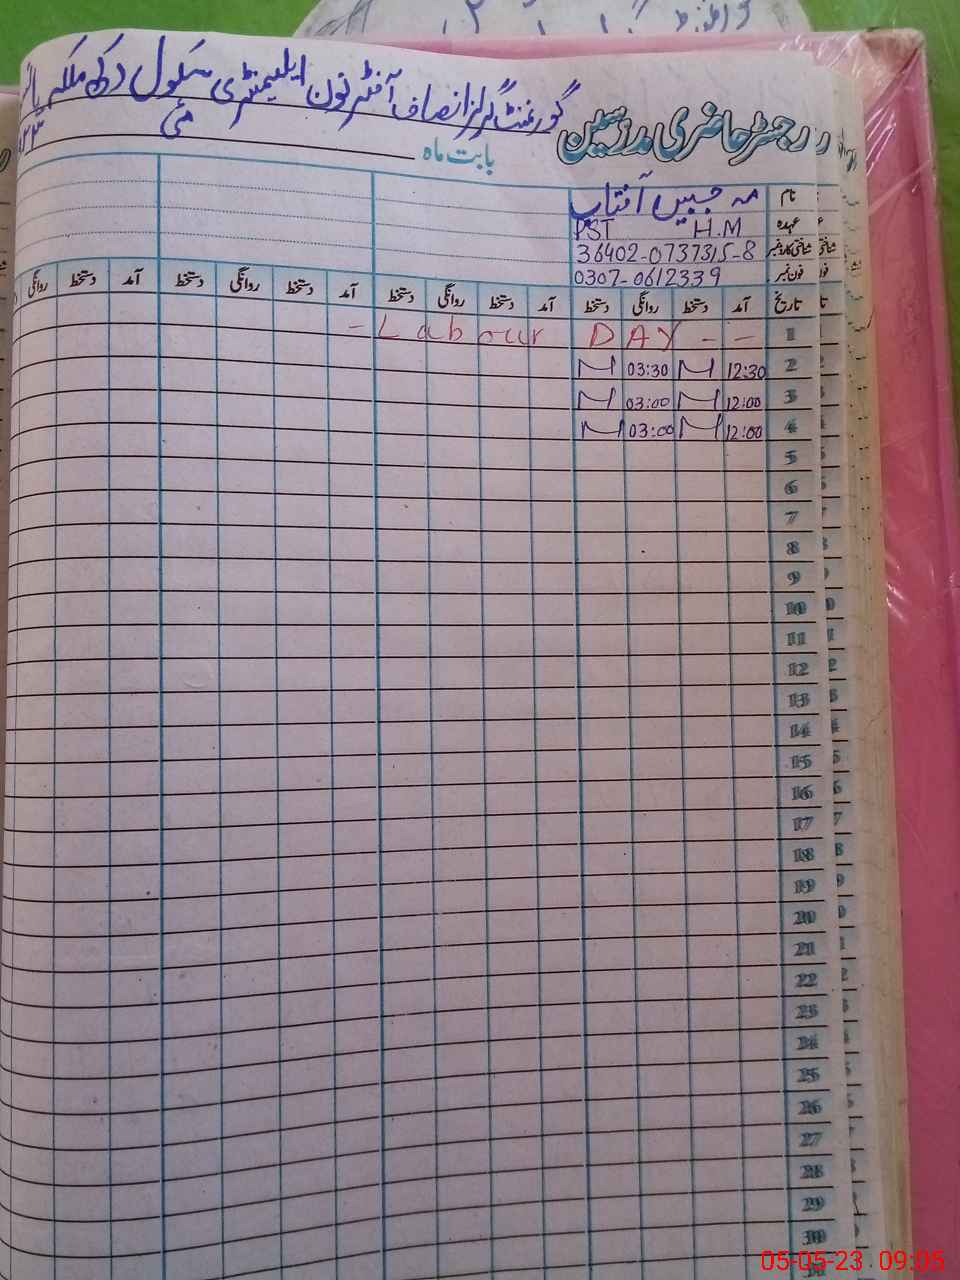 گورنمنٹ گرلز انصاف آفٹر نون ایلیمنٹری سکول دکھ ملکہ
رجسٹر حاضری مدرسین
بابت ماہ مئی
نام مہ جبیں آفتاب
عہدہ H.M PST
شناختی کارڈ نمبر 36402-0737315-8
فون نمبر 0307-0612339
تاریخ آمد دستخط روانگی دستخط آمد دستخط روانگی دستخط آمد دستخط روانگی دستخط آمد دستخط روانگی
1 - Labour DAY - -
2 12:30 03:30
3 12:00 03:00
4 12:00 03:00
5
6
7
8
9
10
11
12
13
14
15
16
17
18
19
20
21
22
23
24
25
26
27
28
29
30
05-05-23 09:05